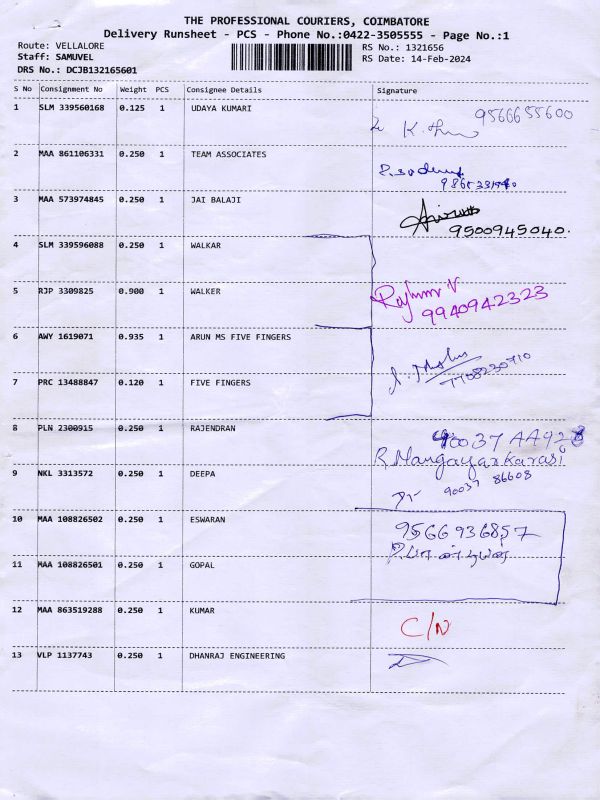 THE PROFESSIONAL COURIERS, COIMBATORE
Delivery Runsheet - PCS - Phone No.:0422-3505555 - Page No.:1
Route: VELLALORE RS No.: 1321656
Staff: SAMUVEL RS Date: 14-Feb-2024
DRS No.: DCJB132165601
S No Consignment No Weight PCS Consignee Details Signature
1 SLM 339560168 0.125 1 UDAYA KUMARI 9566655600
2 MAA 861106331 0.250 1 TEAM ASSOCIATES
3 MAA 573974845 0.250 1 JAI BALAJI
9500945040.
4 SLM 339596088 0.250 1 WALKAR
5 RJP 3309825 0.900 1 WALKER
9940942323
6 AWY 1619071 0.935 1 ARUN MS FIVE FINGERS
7 PRC 13488847 0.120 1 FIVE FINGERS 7708230710
8 PLN 2300915 0.250 1 RAJENDRAN
R.Mangayarkarasi
9 NKL 3313572 0.250 1 DEEPA 90037 86608
10 MAA 108826502 0.250 1 ESWARAN 9566936857
11 MAA 108826501 0.250 1 GOPAL
12 MAA 863519288 0.250 1 KUMAR C/N
13 VLP 1137743 0.250 1 DHANRAJ ENGINEERING